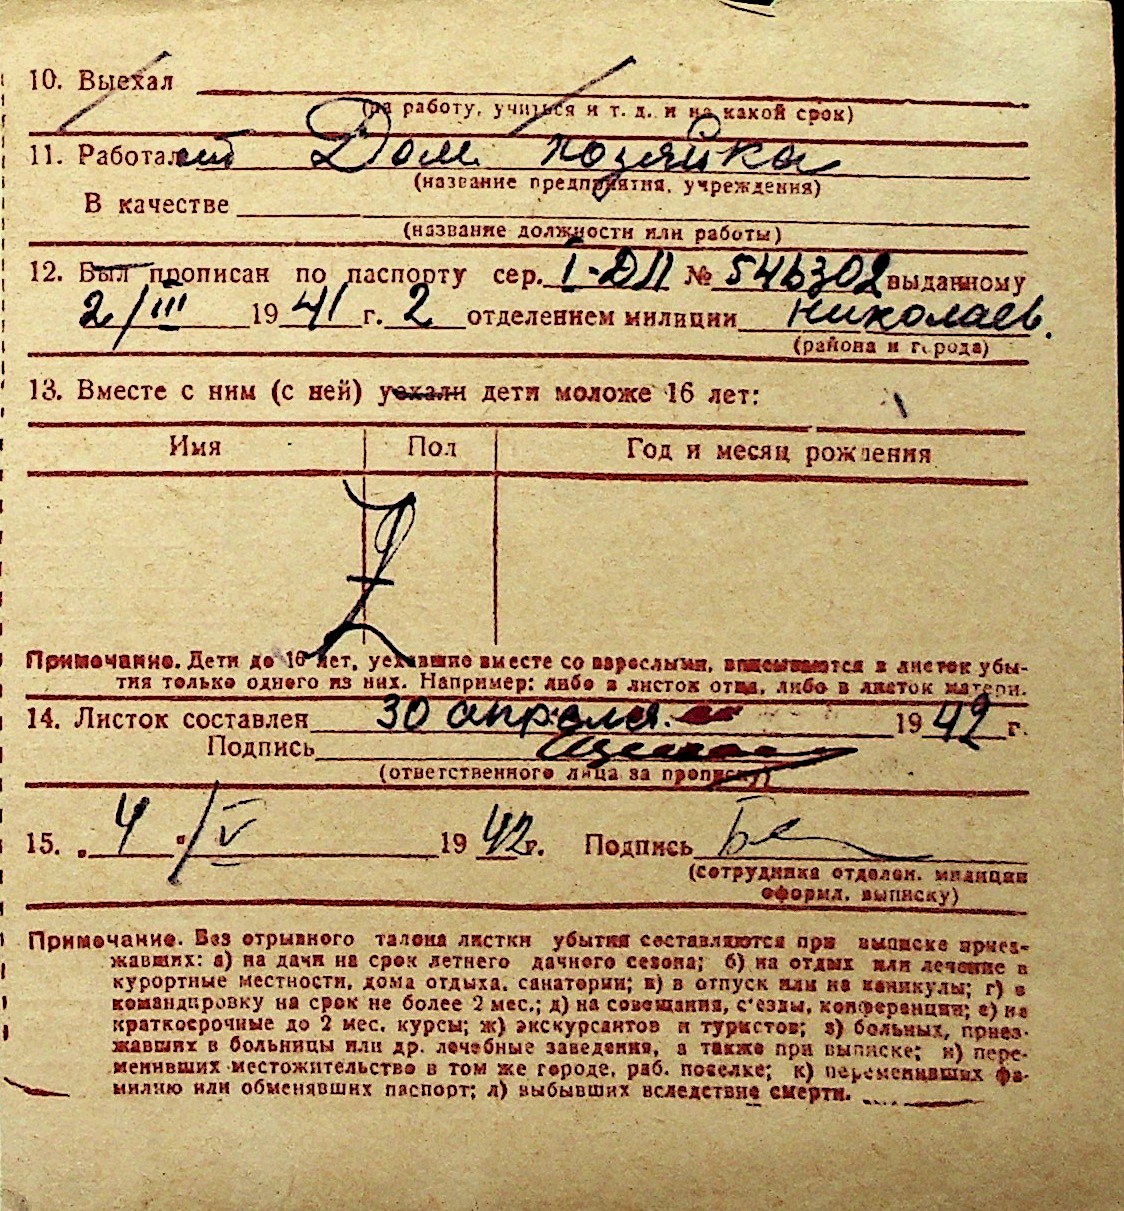 10. Выехал
(на работу, учиться и т. д. и на какой срок)
11. Работает Дом. хозяйка
(название предприятия, учреждения)
В качестве
(название должности или работы)
12. Был прописан по паспорту сер. I-ДП № 546302 выданному
2/III 1941 г. 2 отделением милиции Николаев.
(района и города)
13. Вместе с ним (с ней) уехали дети моложе 16 лет:
Имя Пол Год и месяц рождения
Z
Примечание. Дети до 16 лет, уехавшие вместе со взрослыми, вписываются в листок убы-
тия только одного из них. Например: либо в листок отца, либо в листок матери.
14. Листок составлен 30 апреля. 1942 г.
Подпись
(ответственного лица за прописку)
15. „4“ /V 1942 г. Подпись
(сотрудника отделен. милиции
оформл. выписку)
Примечание. Без отрывного талона листки убытия составляются при выписке приез-
жавших: а) на дачи на срок летнего дачного сезона; б) на отдых или лечение в
курортные местности, дома отдыха, санатории; в) в отпуск или на каникулы; г) в
командировку на срок не более 2 мес.; д) на совещания, с'езды, конференции; е) на
краткосрочные до 2 мес. курсы; ж) экскурсантов и туристов; з) больных, приез-
жавших в больницы или др. лечебные заведения, а также при выписке; и) пере-
менивших местожительство в том же городе, раб. поселке; к) переменивших фа-
милию или обменявших паспорт; л) выбывших вследствие смерти.